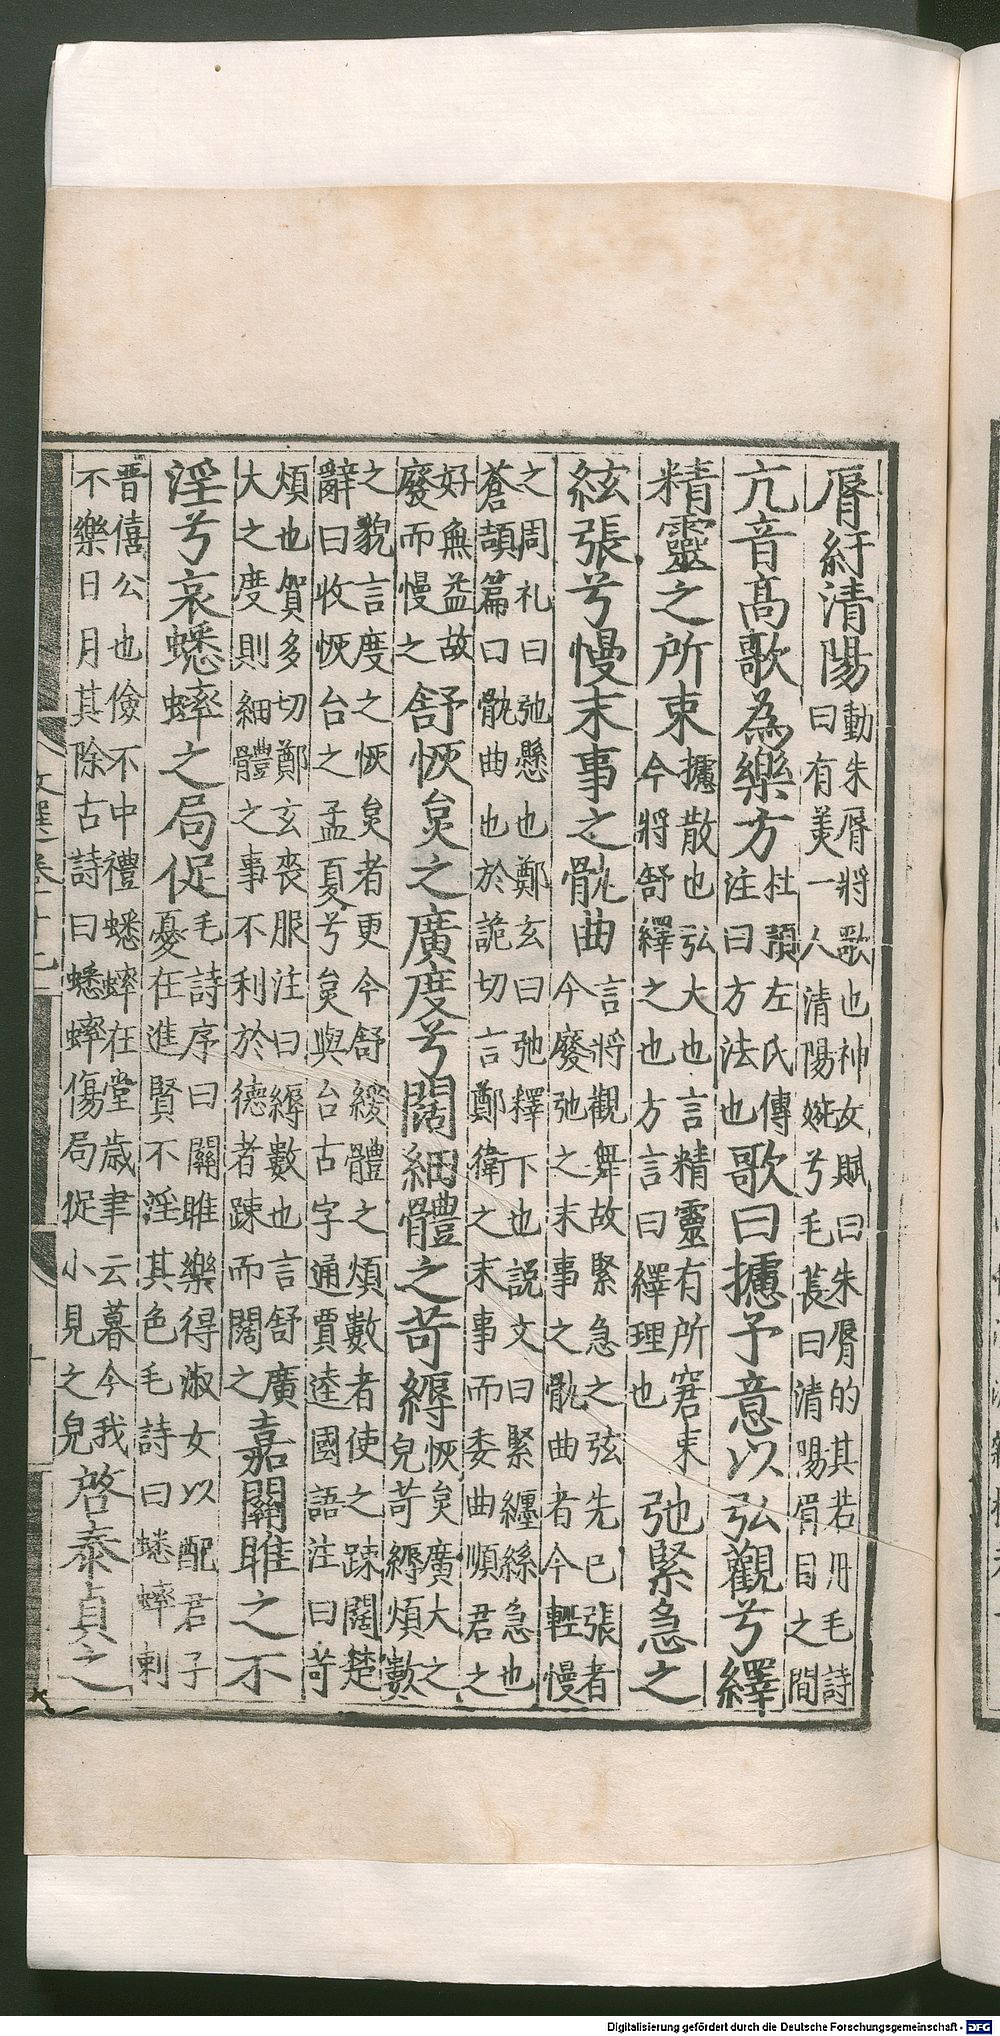 脣紆清陽動朱脣將歌也神女賦曰朱脣的其若丹毛詩
曰有美一人清陽婉兮毛萇曰清陽眉目之間
亢音高歌為樂方杜預左氏傳
注曰方法也歌曰攄予意以弘觀兮繹
精靈之所束攄散也弘大也言精靈有所窘束
今將舒繹之也方言曰繹理也弛緊急之
絃張兮慢末事之骫曲言將觀舞故緊急之弦先已張者
今廢弛之末事之骫曲者今輕慢
之周礼曰弛懸也鄭玄曰弛釋下也説文曰緊纏絲急也
蒼頡篇曰骫曲也於詭切言鄭衛之末事而委曲順君之
好無益故
廢而慢之舒恢炱之廣度兮闊細體之苛縟恢炱廣大之
皃苛縟煩數
之貌言度之恢炱者更令舒緩體之煩數者使之踈闊楚
辭曰收恢台之孟夏兮炱與台古字通賈逵國語注曰苛
煩也賀多切鄭玄喪服注曰縟數也言舒廣
大之度則細體之事不利於德者踈而闊之嘉關雎之不
淫兮哀蟋蟀之局促毛詩序曰關雎樂得淑女以配君子
憂在進賢不淫其色毛詩曰蟋蟀刺
晉僖公也儉不中禮蟋蟀在堂歳聿云暮今我
不樂日月其除古詩曰蟋蟀傷局促小見之皃啓泰貞之
文選卷十七
Digitalisierung gefördert durch die Deutsche Forschungsgemeinschaft - DFG